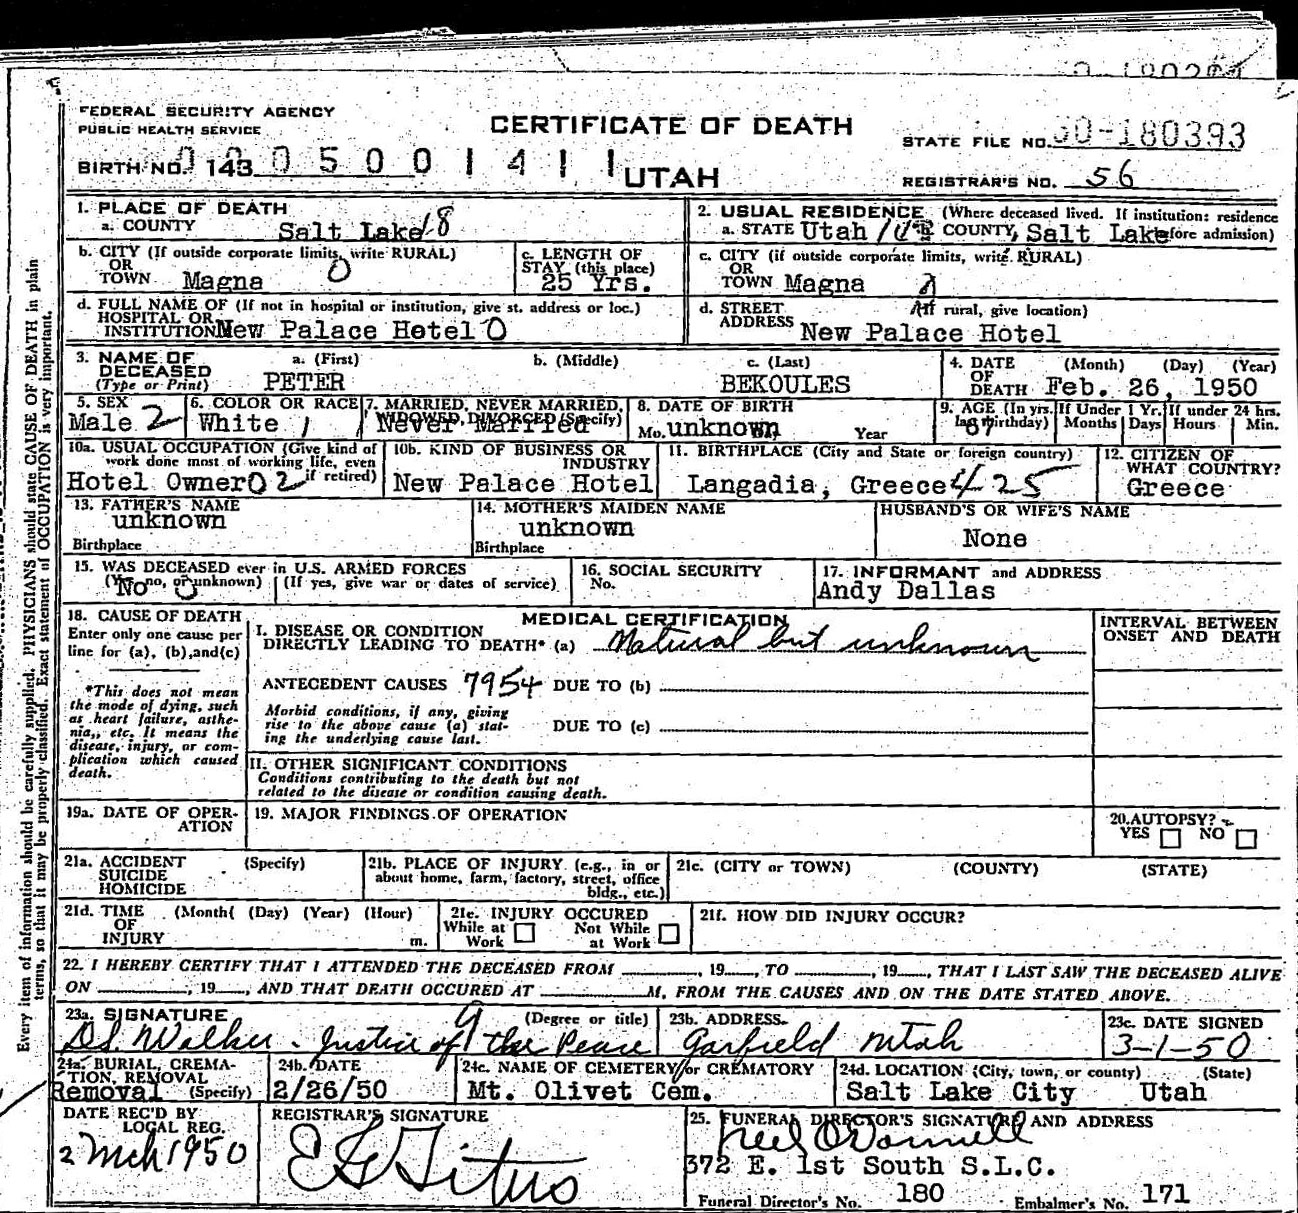 FEDERAL SECURITY AGENCY
PUBLIC HEALTH SERVICE
CERTIFICATE OF DEATH
STATE FILE NO. 50-180393
BIRTH NO. 143 0 5 0 0 1 4 1 1
UTAH
REGISTRAR'S NO. 56
1. PLACE OF DEATH
a. COUNTY Salt Lake 18
2. USUAL RESIDENCE (Where deceased lived. If institution: residence
a. STATE Utah COUNTY, Salt Lake fore admission)
b. CITY (If outside corporate limits, write RURAL)
OR
TOWN Magna 0
c. LENGTH OF
STAY (this place)
25 Yrs.
c. CITY (if outside corporate limits, write RURAL)
OR
TOWN Magna
d. FULL NAME OF (If not in hospital or institution, give st. address or loc.)
HOSPITAL OR
INSTITUTION New Palace Hotel 0
d. STREET (If rural, give location)
ADDRESS New Palace Hotel
3. NAME OF DECEASED (Type or Print)
a. (First) b. (Middle) c. (Last)
PETER BEKOULES
4. DATE OF DEATH (Month) (Day) (Year)
Feb. 26, 1950
5. SEX
Male 2
6. COLOR OR RACE
White 1
7. MARRIED, NEVER MARRIED,
WIDOWED, DIVORCED (Specify)
Never Married
8. DATE OF BIRTH
Mo. unknown Year
9. AGE (In yrs. last birthday)
If Under 1 Yr. Months Days
If under 24 hrs. Hours Min.
10a. USUAL OCCUPATION (Give kind of
work done most of working life, even
if retired)
Hotel Owner 02
10b. KIND OF BUSINESS OR
INDUSTRY
New Palace Hotel
11. BIRTHPLACE (City and State or foreign country)
Langadia, Greece 425
12. CITIZEN OF
WHAT COUNTRY?
Greece
13. FATHER'S NAME
unknown
Birthplace
14. MOTHER'S MAIDEN NAME
unknown
Birthplace
HUSBAND'S OR WIFE'S NAME
None
15. WAS DECEASED ever in U.S. ARMED FORCES
(Yes, no, or unknown) (If yes, give war or dates of service)
No 0
16. SOCIAL SECURITY
No.
17. INFORMANT and ADDRESS
Andy Dallas
18. CAUSE OF DEATH
Enter only one cause per
line for (a), (b), and (c)
*This does not mean
the mode of dying, such
as heart failure, asthe-
nia, etc. It means the
disease, injury, or com-
plication which caused
death.
MEDICAL CERTIFICATION
I. DISEASE OR CONDITION
DIRECTLY LEADING TO DEATH* (a) Natural but unknown
ANTECEDENT CAUSES 7954 DUE TO (b)
Morbid conditions, if any, giving
rise to the above cause (a) stat-
ing the underlying cause last.
DUE TO (c)
II. OTHER SIGNIFICANT CONDITIONS
Conditions contributing to the death but not
related to the disease or condition causing death.
INTERVAL BETWEEN
ONSET AND DEATH
19a. DATE OF OPER-
ATION
19. MAJOR FINDINGS OF OPERATION
20. AUTOPSY?
YES NO
21a. ACCIDENT (Specify)
SUICIDE
HOMICIDE
21b. PLACE OF INJURY (e.g., in or
about home, farm, factory, street, office
bldg., etc.)
21c. (CITY or TOWN) (COUNTY) (STATE)
21d. TIME (Month( (Day) (Year) (Hour)
OF
INJURY m.
21e. INJURY OCCURED
While at Work Not While at Work
21f. HOW DID INJURY OCCUR?
22. I HEREBY CERTIFY THAT I ATTENDED THE DECEASED FROM , 19 , TO , 19 , THAT I LAST SAW THE DECEASED ALIVE
ON , 19 , AND THAT DEATH OCCURED AT M, FROM THE CAUSES AND ON THE DATE STATED ABOVE.
23a. SIGNATURE (Degree or title)
D.S. Walker - Justice of the Peace
23b. ADDRESS
Garfield Utah
23c. DATE SIGNED
3-1-50
24a. BURIAL, CREMA-
TION, REMOVAL
Removal (Specify)
24b. DATE
2/26/50
24c. NAME OF CEMETERY or CREMATORY
Mt. Olivet Cem.
24d. LOCATION (City, town, or county) (State)
Salt Lake City Utah
DATE REC'D BY
LOCAL REG.
2 Mch 1950
REGISTRAR'S SIGNATURE
E G Titus
25. FUNERAL DIRECTOR'S SIGNATURE AND ADDRESS
Neil O'Donnell
372 E. 1st South S.L.C.
Funeral Director's No. 180 Embalmer's No. 171
Every item of information should be carefully supplied. PHYSICIANS should state CAUSE OF DEATH in plain
terms, so that it may be properly classified. Exact statement of OCCUPATION is very important.